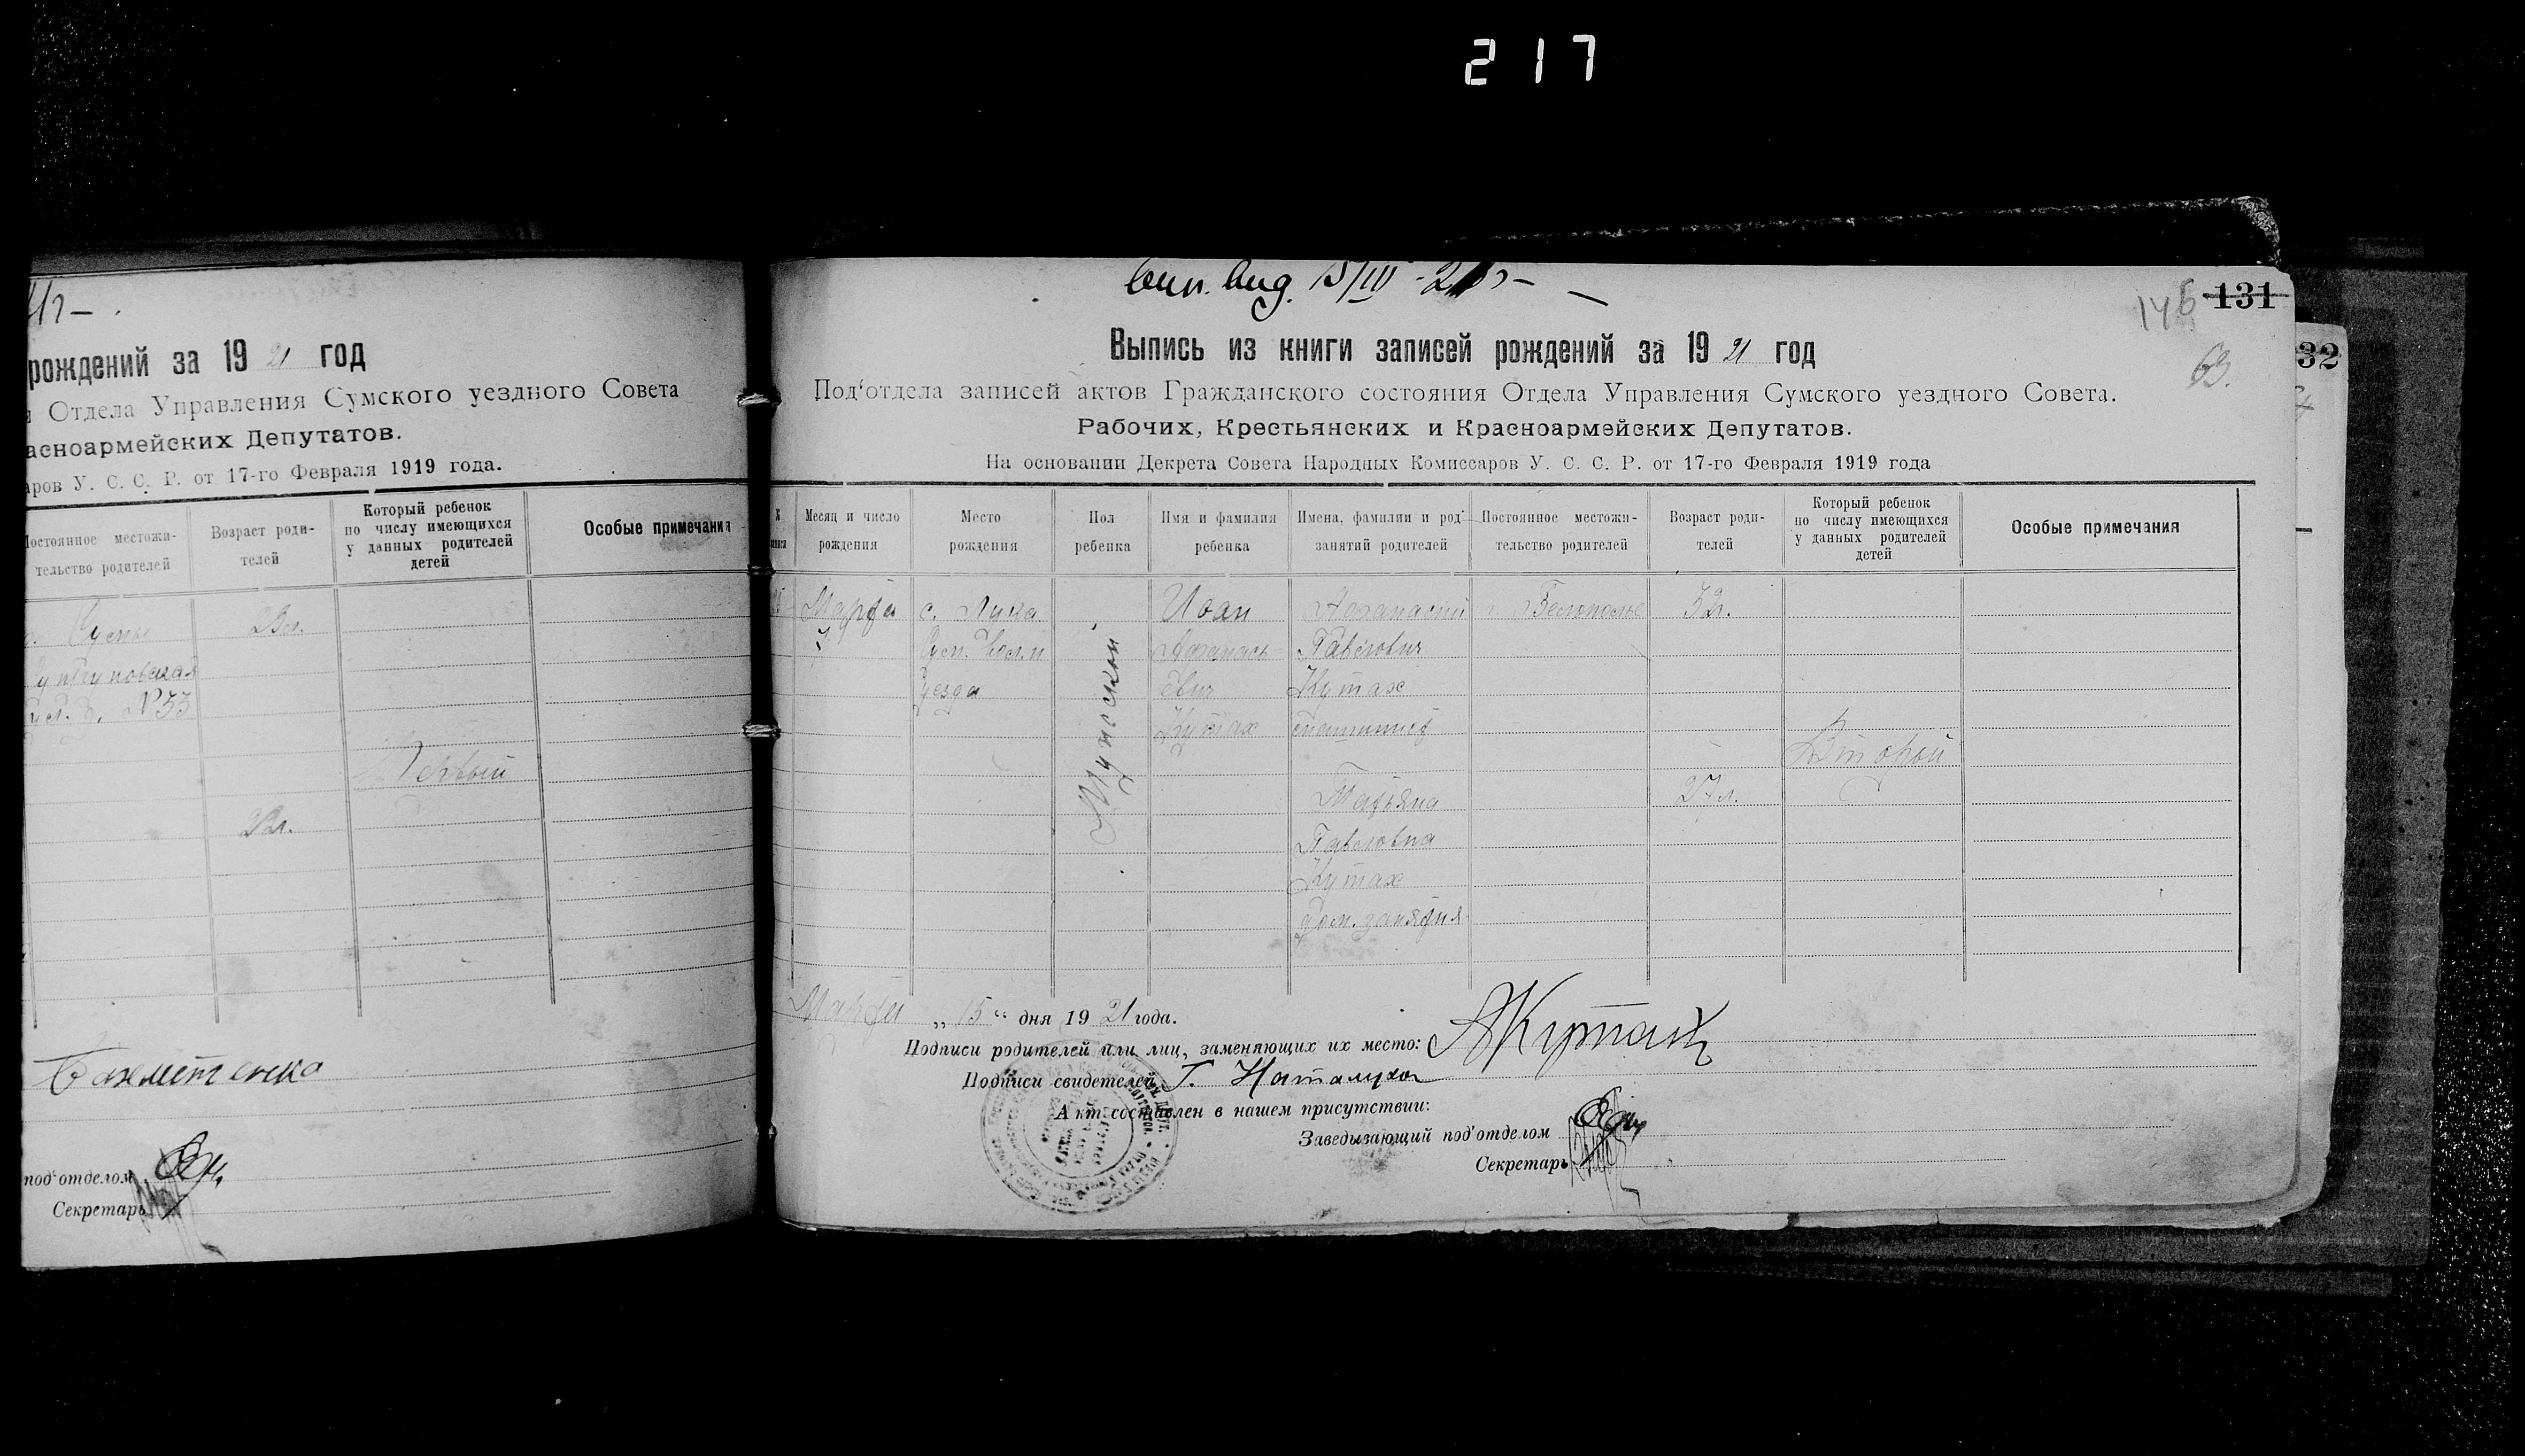 217
рождений за 19 21 год
Отдела Управления Сумского уездного Совета
асноармейских Депутатов.
аров У. С. С. Р. от 17-го Февраля 1919 года.
Постоянное местожи-
тельство родителей
Возраст роди-
телей
Который ребенок
по числу имеющихся
у данных родителей
детей
Особые примечания
Сумы
№ 53
Первый
под'отделом
Секретарь
131
146
63.
32
Выпись из книги записей рождений за 19 21 год
Под'отдела записей актов Гражданского состояния Отдела Управления Сумского уездного Совета.
Рабочих, Крестьянских и Красноармейских Депутатов.
На основании Декрета Совета Народных Комиссаров У. С. С. Р. от 17-го Февраля 1919 года
Месяц и число
рождения
Место
рождения
Пол
ребенка
Имя и фамилия
ребенка
Имена, фамилии и род
занятий родителей
Постоянное местожи-
тельство родителей
Возраст роди-
телей
Который ребенок
по числу имеющихся
у данных родителей
детей
Особые примечания
Марта
с. Лука
Сум. вол. и
уезда
Мужской
Иоан
Афанась
евич
Кутах
Афанасий
Павлович
Кутах
Татьяна
Павловна
Кутах
дом. занятия
г. Белополье
32л.
27л.
Второй
Марта „ 15 “ дня 19 21 года.
Подписи родителей или лиц, заменяющих их место: АКутах
Подписи свидетелей Г. Наталуха
Акт составлен в нашем присутствии:
Заведывающий под'отделом
Секретарь